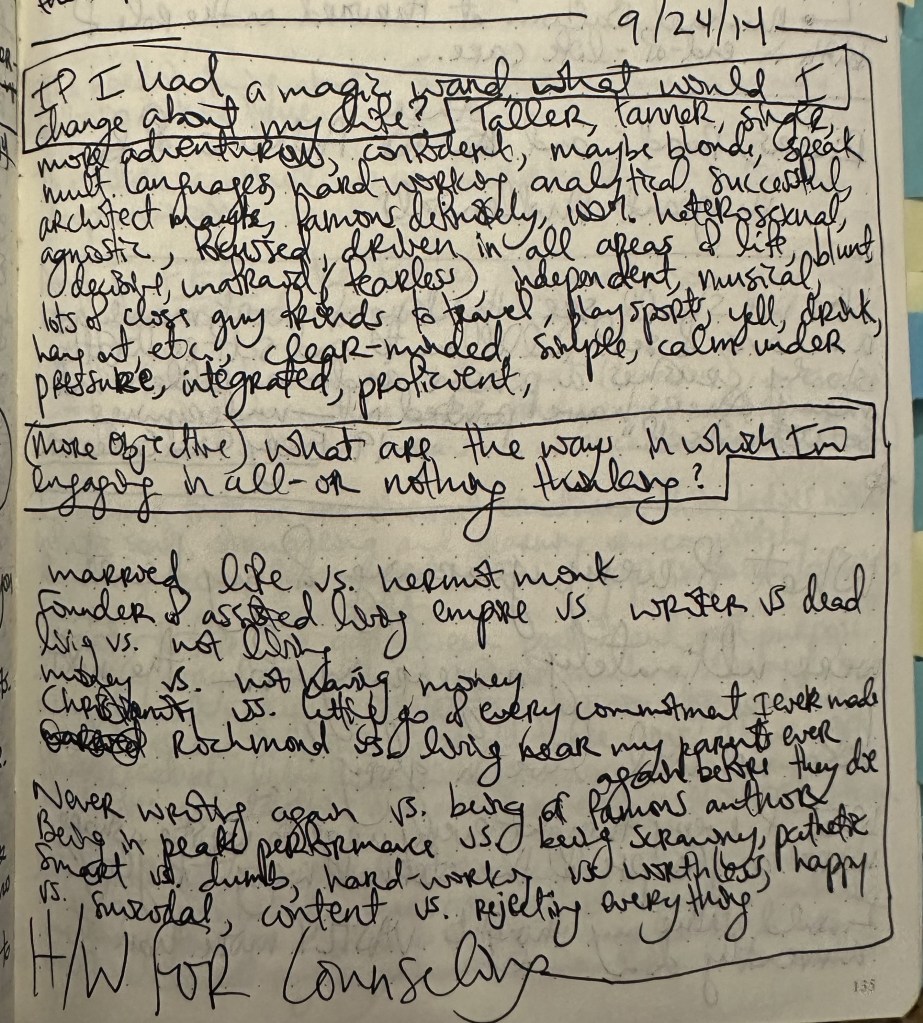 9/24/14
If I had a magic wand, what would I
change about my life? Taller, tanner, single,
more adventurous, confident, maybe blonde, speak
mult. languages, hard-working, analytical, successful,
architect maybe, famous definitely, 100% heterosexual,
agnostic, focused, driven in all areas of life, blunt
decisive, unafraid (fearless), independent, musical,
lots of close guy friends to travel, play sports, yell, drink,
hang out, etc., clear-minded, simple, calm under
pressure, integrated, proficient,
(more objective) what are the ways in which I'm
engaging in all-or nothing thinking?
married life vs. hermit monk
Founder of assisted living empire vs writer vs dead
livig vs. not living
money vs. not having money
Christianity vs. letting go of every commitment I ever made
Richmond vs. living near my parents ever
again before they die
Never writing again vs. being a famous author
Being in peak performance vs. being scrawny, pathetic
smart vs. dumb, hard-working vs worthless, happy
vs. suicidal, content vs. rejecting everything
H/W FOR Counseling
135